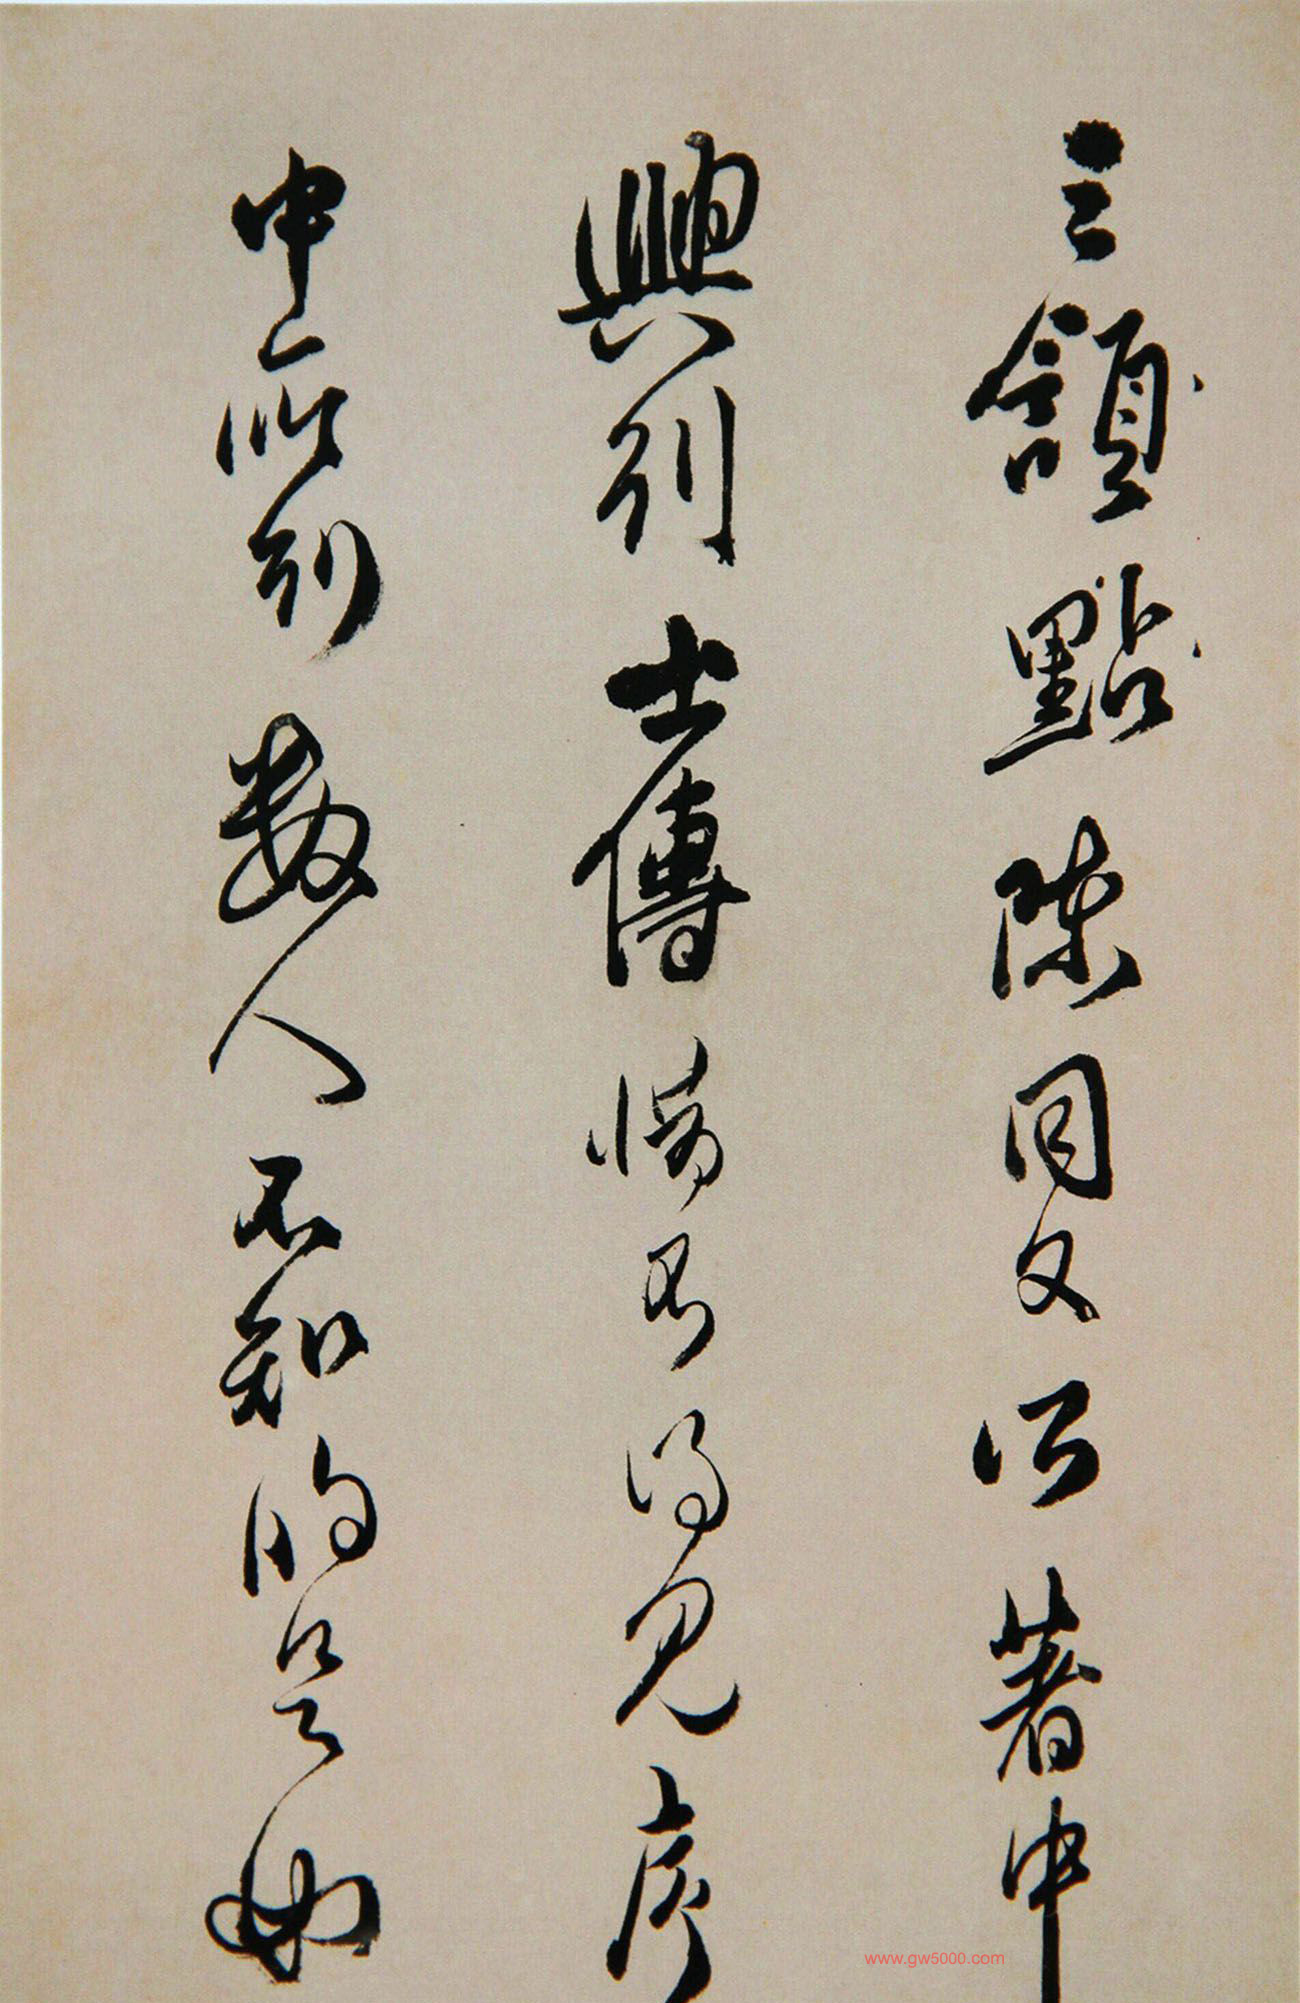 三領點陳同父所著中
興列士傳惜不得見序
中所列數人不知的是如
www.gw5000.com